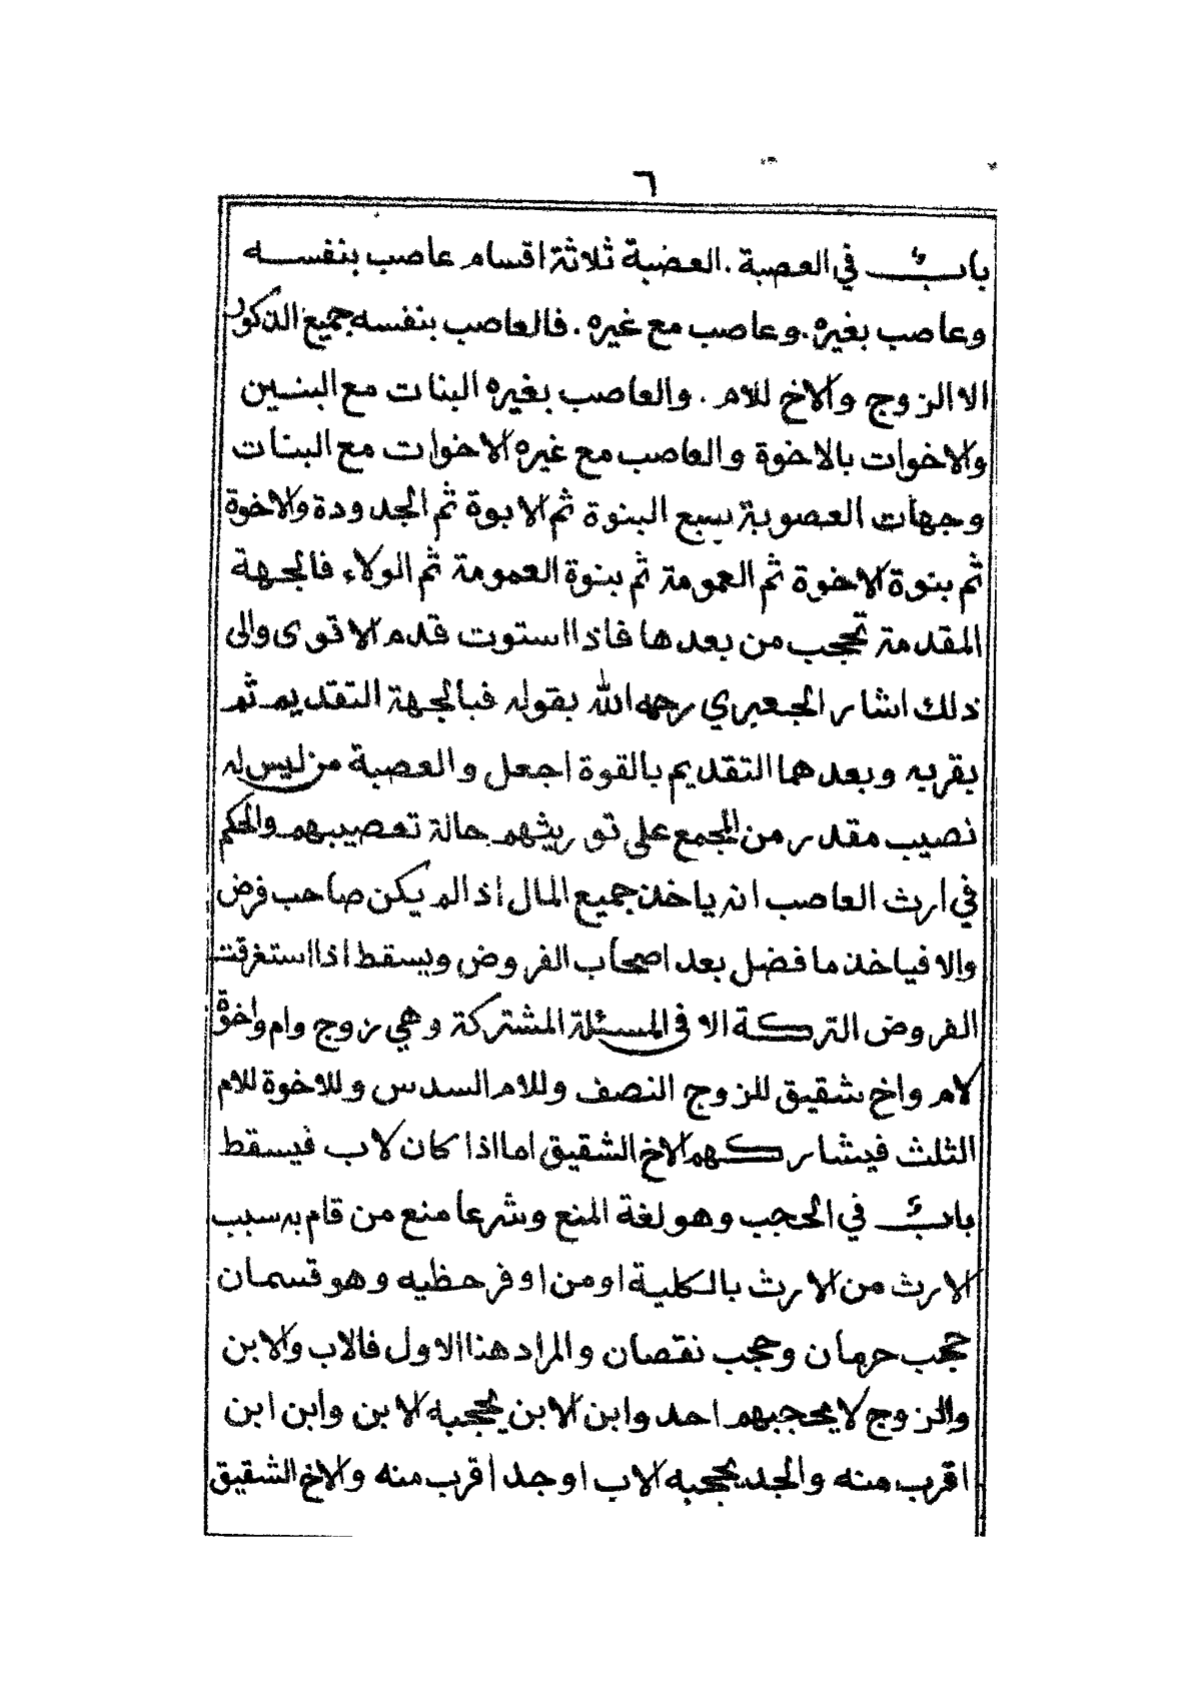 ٦
باب في العصبة . العضبة ثلاثة اقسام عاصب بنفسه
وعاصب بغيره . وعاصب مع غيره . فالعاصب بنفسه جميع الذكور
الا الزوج والاخ للام . والعاصب بغيره البنات مع البنين
والاخوات بالاخوة والعاصب مع غيره الاخوات مع البنات
وجهات العصوبة سبع البنوة ثم الابوة ثم الجدودة والاخوة
ثم بنوة الاخوة ثم العمومة ثم بنوة العمومة ثم الولاء فالجهة
المقدمة تحجب من بعدها فاذا استوت قدم الاقوى والى
ذلك اشار الجعبري رحمه الله بقوله فبالجهة التقديم ثم
بقربه وبعدهما التقديم بالقوة اجعل والعصبة من ليس له
نصيب مقدر من المجمع على توريثهم حالة تعصيبهم والحكم
في ارث العاصب انه ياخذ جميع المال اذ الم يكن صاحب فرض
والا فياخذ ما فضل بعد اصحاب الفروض ويسقط اذا استغرقت
الفروض التركة الا في المسئلة المشتركة وهي زوج وام واخوة
لام واخ شقيق للزوج النصف وللام السدس وللاخوة للام
الثلث فيشاركهم الاخ الشقيق اما اذا كان لاب فيسقط
باب في الحجب وهو لغة المنع وشرعا منع من قام به سبب
الارث من الارث بالكلية او من اوفر حظيه وهو قسمان
حجب حرمان وحجب نقصان والمراد هنا الاول فالاب والابن
والزوج لا يحجبهم احد وابن الابن يحجبه الابن وابن ابن
اقرب منه والجد يحجبه الاب او جد اقرب منه والاخ الشقيق